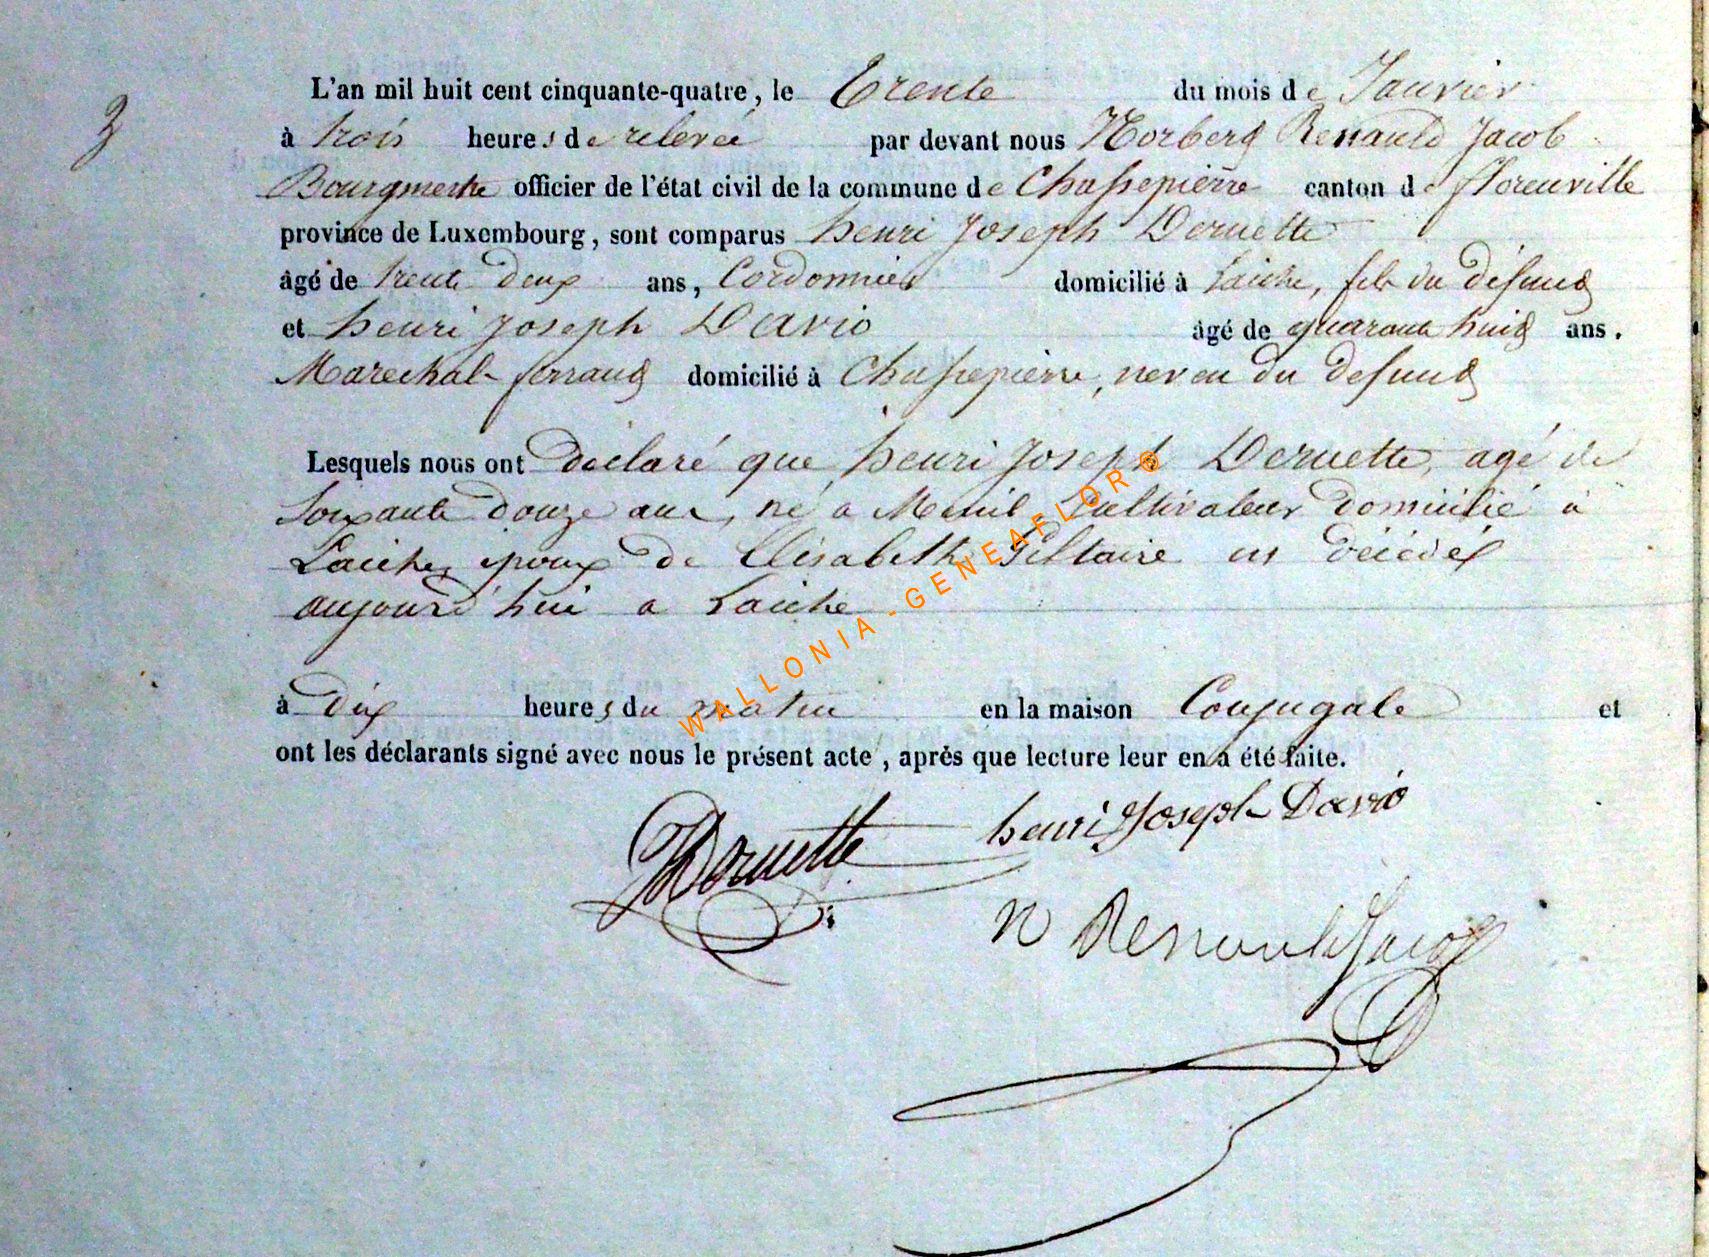 3
L'an mil huit cent cinquante-quatre, le trente du mois de Janvier
à trois heures de relevée par devant nous Norbert Renauld Jacob
Bourgmestre officier de l'état civil de la commune de Chassepierre canton de florenville
province de Luxembourg, sont comparus henri Joseph Dernette
âgé de trente deux ans, Cordonnier domicilié à Laiche, fils du défunt
et henri Joseph Davio âgé de quarante huit ans.
Marechal ferrant domicilié à Chassepierre, neveu du defunt
Lesquels nous ont déclaré que henri Joseph Dernette, agé de
soixante douze ans, né a Menil Cultivateur domicilié à
Laiche, epoux de Elisabeth Piltaire est décédé
aujourd'hui a Laiche
à dix heures du matin en la maison Conjugale et
ont les déclarants signé avec nous le présent acte, après que lecture leur en a été faite.
HDernette henri Joseph Davio
N Renauld Jacob
WALLONIA-GENEAFLOR®